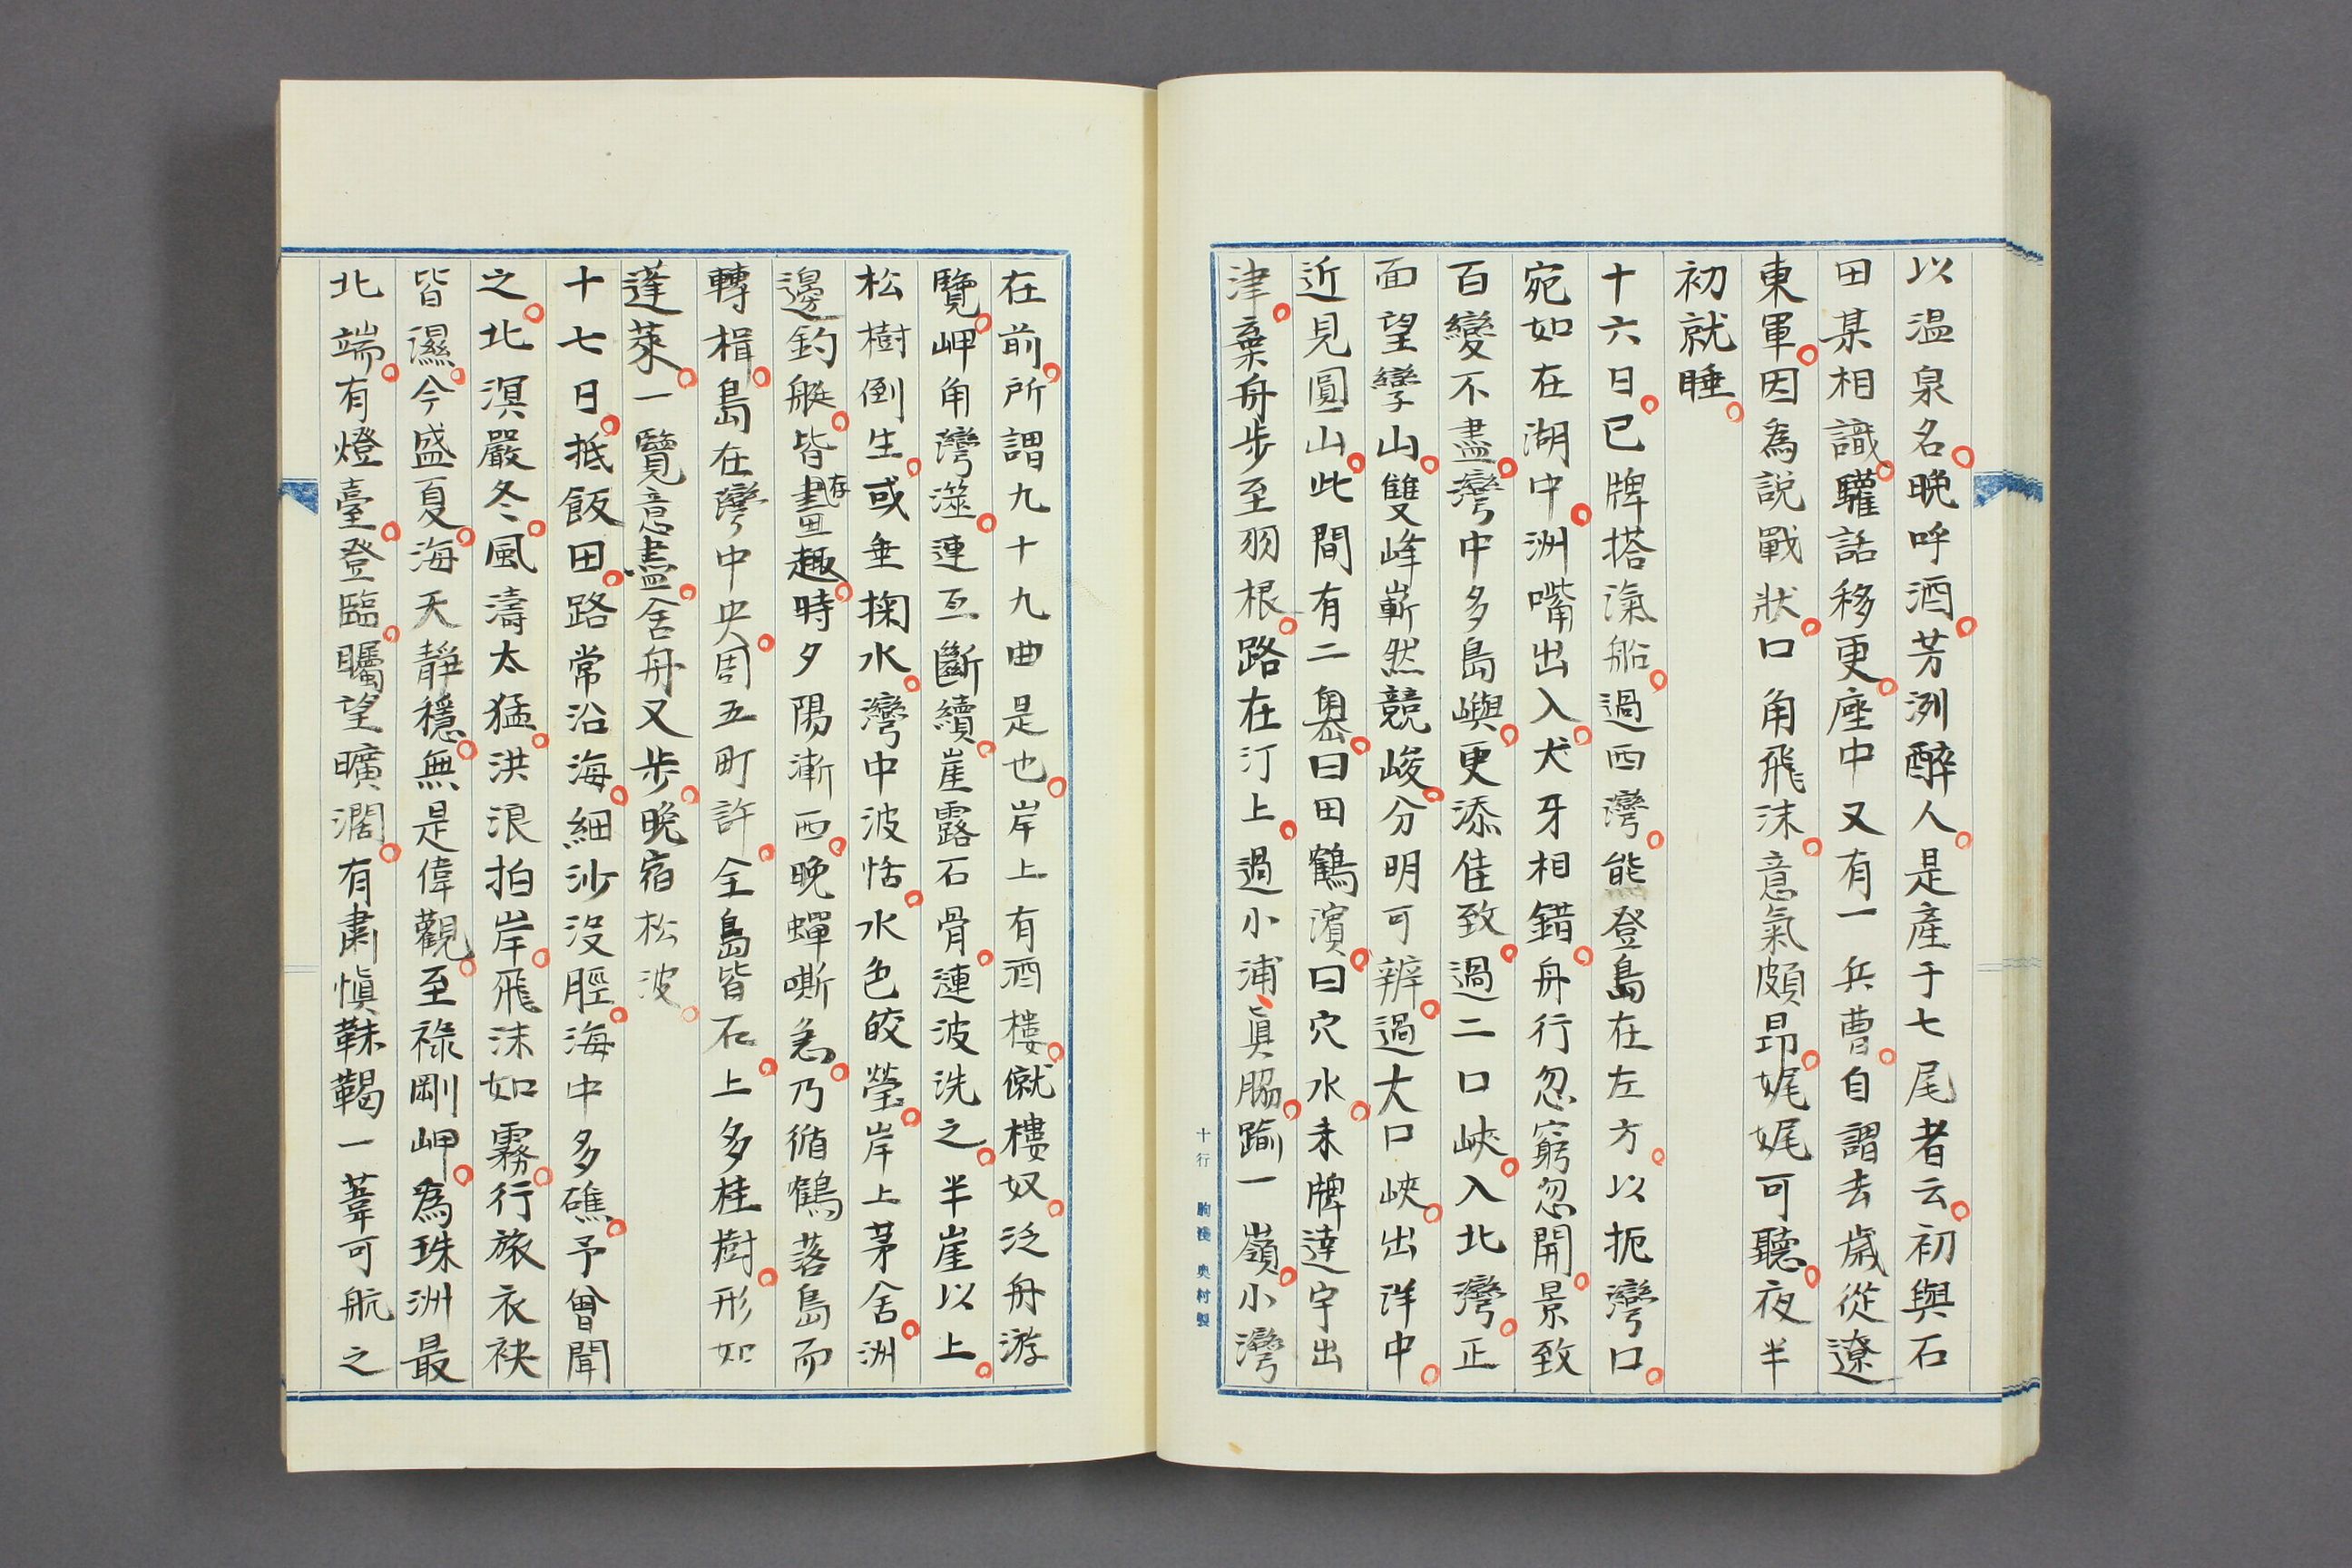 以温泉名。晩呼酒。芳洌醉人。是產于七尾者云。初與石
田某相識。驩話移更。座中又有一兵曹。自謂去歲從遼
東軍。因為説戰狀。口角飛沫。意氣頗昂。娓娓可聽。夜半
初就睡。
十六日。已牌搭滊船。過西灣。能登島在左方。以扼灣口。
宛如在湖中。洲嘴出入。犬牙相錯。舟行忽窮忽開。景致
百變不盡。灣中多島嶼。更添佳致。過二口峽。入北灣。正
面望孿山。雙峰嶄然競峻。分明可辨。過大口峽。出洋中。
近見圓山。此間有二奧。曰田鶴濱。曰穴水。未牌達宇出
津。棄舟步至羽根。路在汀上。過小浦、眞脇。踰一嶺。小灣
在前。所謂九十九曲是也。岸上有酒樓。僦樓奴。泛舟游
覽。岬角灣澨。連亙斷續。崖露石骨。漣波洗之。半崖以上。
松樹倒生。或垂掬水。灣中波恬。水色皎瑩。岸上茅舍。洲
邊釣艇。皆存畫趣。時夕陽漸西。晩蟬嘶急。乃循鶴落島而
轉楫。島在灣中央。周五町許。全島皆石。上多桂樹。形如
蓬萊。一覽意盡。舍舟又步。晩宿松波。
十七日。抵飯田。路常沿海。細沙沒脛。海中多礁。予曾聞
之。北溟嚴冬。風濤太猛。洪浪拍岸。飛沫如霧。行旅衣袂
皆濕。今盛夏。海天靜穩。無是偉觀。至祿剛岬。為珠洲最
北端。有燈臺。登臨。矚望曠濶。有肅愼靺鞨一葦可航之
十行 奥村製